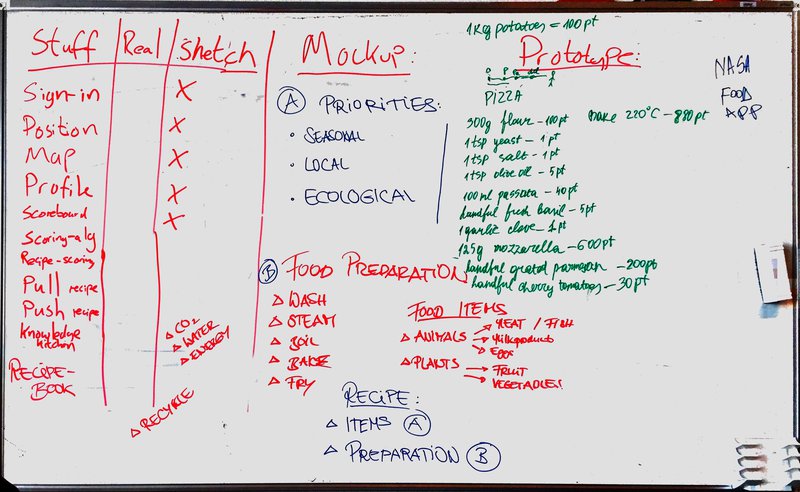 Stuff
Real
Sketch
Sign-in X
Position X
Map X
Profile X
Scoreboard X
Scoring-alg
Recipe-scoring
Pull recipe
Push recipe
Knowledge kitchen
RECIPE-
BOOK
△ CO2
△ WATER
△ ENERGY
△ RECYCLE
Mockup:
A PRIORITIES:
• SEASONAL
• LOCAL
• ECOLOGICAL
B FOOD PREPARATION
△ WASH
△ STEAM
△ BOIL
△ BAKE
△ FRY
FOOD ITEMS
△ ANIMALS → MEAT / FISH
→ Milkproducts
→ EGGS
△ PLANTS → FRUIT
→ VEGETABLES
RECIPE:
△ ITEMS A
△ PREPARATION B
1Kg potatoes = 100pt
Prototype:
PIZZA
300g flour – 100pt
bake 220°C – 880pt
1tsp yeast – 1pt
1tsp salt – 1pt
1tsp olive oil – 5pt
100ml passata – 40pt
handful fresh basil – 5pt
1 garlic clove – 1pt
125g mozzarella – 600pt
handful grated parmesan – 200pt
handful cherry tomatoes – 30pt
NASA
FOOD
APP